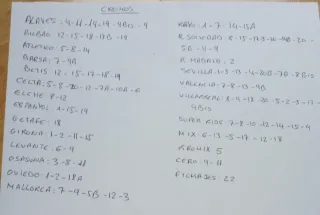 CROMOS
ALAVES: 4-11-14-19-4BIS-9
BILBAO 12-15-18-17B-19
ATLETICO: 5-8-14
BARSA: 7-9A
BETIS 12-15-17-18-19
CELTA: 5-8-20-12-7A-10A-6
ELCHE 8-12
ESPAÑOL 1-15-19
GETAFE: 18
GIRONA: 1-2-11-15
LEVANTE: 6-9
OSASUNA: 3-8-11
OVIEDO: 1-2-18A
MALLORCA: 7-9-5B-12-3
RAYO: 1-7-14-13A
R SOCIEDAD 8-15-17-
5B-11-9
R MADRID: 2
SEVILLA: 1-3-13-4-20B-7A-8BIS
VALENCIA: 7-8-13-9B
VILLARREAL: 8-9-17-20-5-2-5-17-
4BIS
SUPER KIDS 7-8-10-12-14-15-9
MIX: 6-13-5-17-12-18
KROMIX 5
CERO: 4-11
FICHAJES: 22